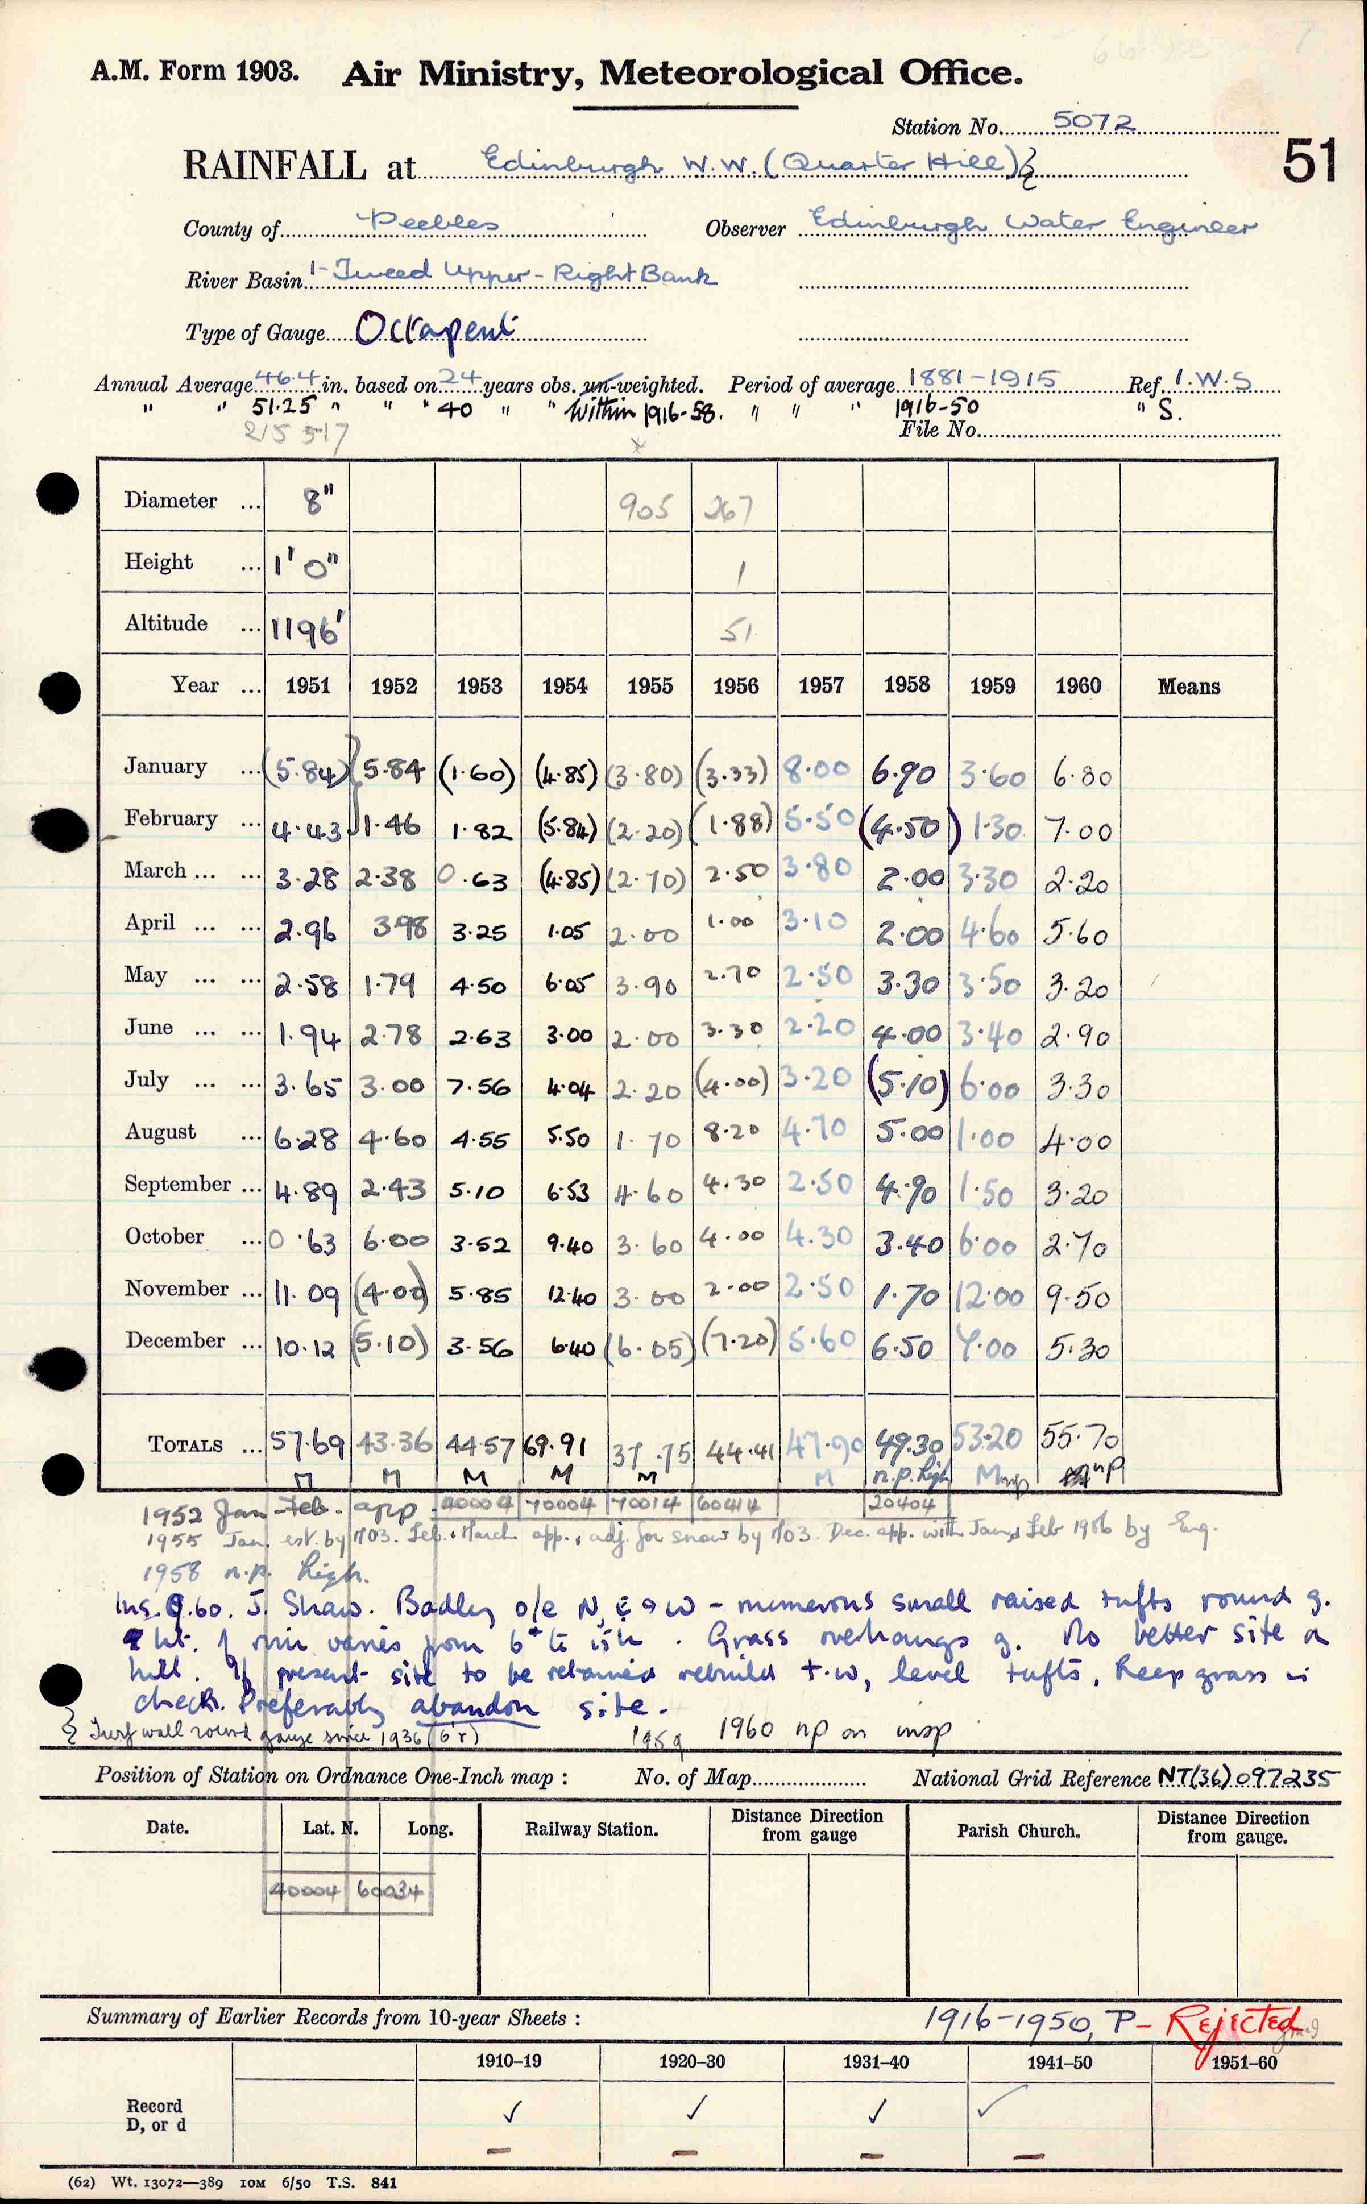 A.M. Form 1903. Air Ministry, Meteorological Office.
Station No. 5072
RAINFALL at Edinburgh W.W. (Quarter Hill)
51
County of Peebles Observer Edinburgh Water Engineer
River Basin 1-Tweed Upper - Right Bank
Type of Gauge Octapent
Annual Average 46.4 in. based on 24 years obs. un-weighted. Period of average 1881-1915 Ref. I.W.S
" " 51.25 " " " 40 " " Within 1916-58. " " " 1916-50 " S.
215 517 File No.
Diameter ... 8" 905 267
Height ... 1' 0" 1
Altitude ... 1196' 51
Year ... 1951 1952 1953 1954 1955 1956 1957 1958 1959 1960 Means
January ... (5.84) 5.84 (1.60) (4.85) (3.80) (3.33) 8.00 6.90 3.60 6.80
February ... 4.43 1.46 1.82 (5.84) (2.20) (1.88) 5.50 (4.50) 1.30 7.00
March ... ... 3.28 2.38 0.63 (4.85) (2.70) 2.50 3.80 2.00 3.30 2.20
April ... ... 2.96 3.98 3.25 1.05 2.00 1.00 3.10 2.00 4.60 5.60
May ... ... 2.58 1.79 4.50 6.05 3.90 2.70 2.50 3.30 3.50 3.20
June ... ... 1.94 2.78 2.63 3.00 2.00 3.30 2.20 4.00 3.40 2.90
July ... ... 3.65 3.00 7.56 4.04 2.20 (4.00) 3.20 (5.10) 6.00 3.30
August ... 6.28 4.60 4.55 5.50 1.70 8.20 4.70 5.00 1.00 4.00
September ... 4.89 2.43 5.10 6.53 4.60 4.30 2.50 4.90 1.50 3.20
October ... 0.63 6.00 3.52 9.40 3.60 4.00 4.30 3.40 6.00 2.70
November ... 11.09 (4.00) 5.85 12.40 3.00 2.00 2.50 1.70 12.00 9.50
December ... 10.12 (5.10) 3.56 6.40 (6.05) (7.20) 5.60 6.50 7.00 5.30
TOTALS ... 57.69 43.36 44.57 69.91 37.75 44.41 47.90 49.30 53.20 55.70
M M M M M M n.p. high M np np
1952 Jan Feb. app. 40004 70004 70014 60414 20404
1955 Jan. est. by M03. Feb. & March app., adj. for snow by M03. Dec. app. with Jan & Feb 1956 by Eng.
1958 n.p. high.
Ins. 9.60. J. Shaw. Badly o/e N, E & W - numerous small raised tufts round g.
ht. of rim varies from 6" to 15 in. Grass overhangs g. No better site on
hill. If present site to be retained rebuild t.w, level tufts, keep grass in
check. Preferably abandon site.
Turf wall round gauge since 1936 (6'r) 1959 1960 np on insp
Position of Station on Ordnance One-Inch map : No. of Map National Grid Reference NT(36) 097235
Date. Lat. N. Long. Railway Station. Distance Direction from gauge Parish Church. Distance Direction from gauge.
40004 60034
Summary of Earlier Records from 10-year Sheets : 1916-1950, P - Rejected
1910-19 1920-30 1931-40 1941-50 1951-60
Record D, or d ✓ ✓ ✓ ✓
(62) Wt. 13072—389 IOM 6/50 T.S. 841